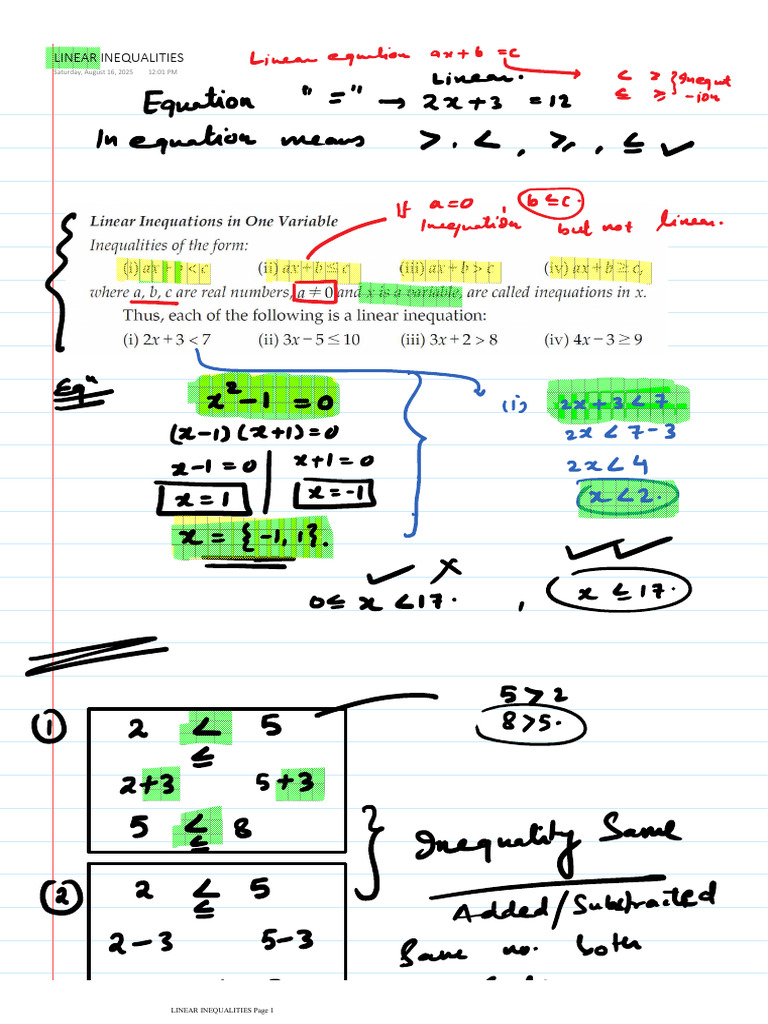 LINEAR INEQUALITIES
Saturday, August 16, 2025 12:01 PM
Linear equation ax + b = c
< >
≤ ≥ } Inequat
-ion
Linear.
Equation "=" → 2x + 3 = 12
In equation means >, <, ≥, ≤ ✓
If a = 0, b ≤ c.
Inequation but not linear.
Linear Inequations in One Variable
Inequalities of the form:
(i) ax + b < c (ii) ax + b ≤ c (iii) ax + b > c (iv) ax + b ≥ c,
where a, b, c are real numbers, a ≠ 0 and x is a variable, are called inequations in x.
Thus, each of the following is a linear inequation:
(i) 2x + 3 < 7 (ii) 3x − 5 ≤ 10 (iii) 3x + 2 > 8 (iv) 4x − 3 ≥ 9
Eqⁿ
x² − 1 = 0
(x−1)(x+1) = 0
x−1 = 0 | x+1 = 0
x = 1 | x = −1
x = {−1, 1}.
(i) 2x + 3 < 7
2x < 7 − 3
2x < 4
x < 2.
✓ ✗ ✓✓
0 ≤ x < 17. , x ≤ 17.
① 2 < 5
≤
2+3 5+3
5 < 8
≤
5 > 2
8 > 5.
Inequality Same
Added/Substracted
Same no. both
② 2 < 5
≤
2−3 5−3
LINEAR INEQUALITIES Page 1